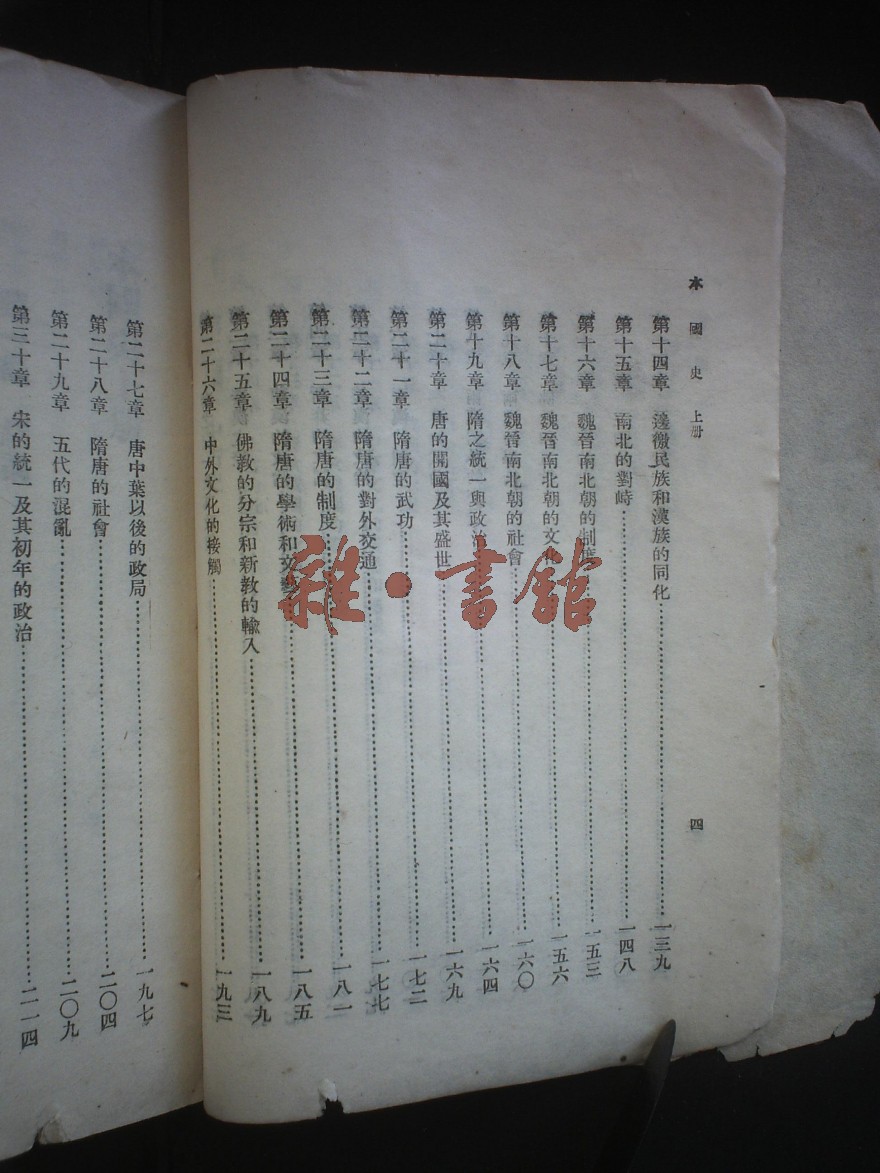 本國史 上册
四
第十四章 邊徼民族和漢族的同化 一三九
第十五章 南北的對峙 一四八
第十六章 魏晉南北朝的制度 一五三
第十七章 魏晉南北朝的文化 一五六
第十八章 魏晉南北朝的社會 一六〇
第十九章 隋之統一與政治 一六四
第二十章 唐的開國及其盛世 一六九
第二十一章 隋唐的武功 一七二
第二十二章 隋唐的對外交通 一七七
第二十三章 隋唐的制度 一八一
第二十四章 隋唐的學術和文藝 一八五
第二十五章 佛教的分宗和新教的輸入 一八九
第二十六章 中外文化的接觸 一九三
第二十七章 唐中葉以後的政局 一九七
第二十八章 隋唐的社會 二〇四
第二十九章 五代的混亂 二〇九
第三十章 宋的統一及其初年的政治 二一四
雜·書館